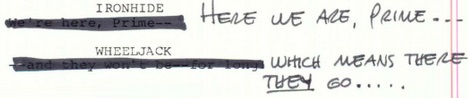 IRONHIDE
We're here, Prime-- HERE WE ARE, PRIME...
WHEELJACK
--and they won't be--for long. WHICH MEANS THERE
THEY GO.....